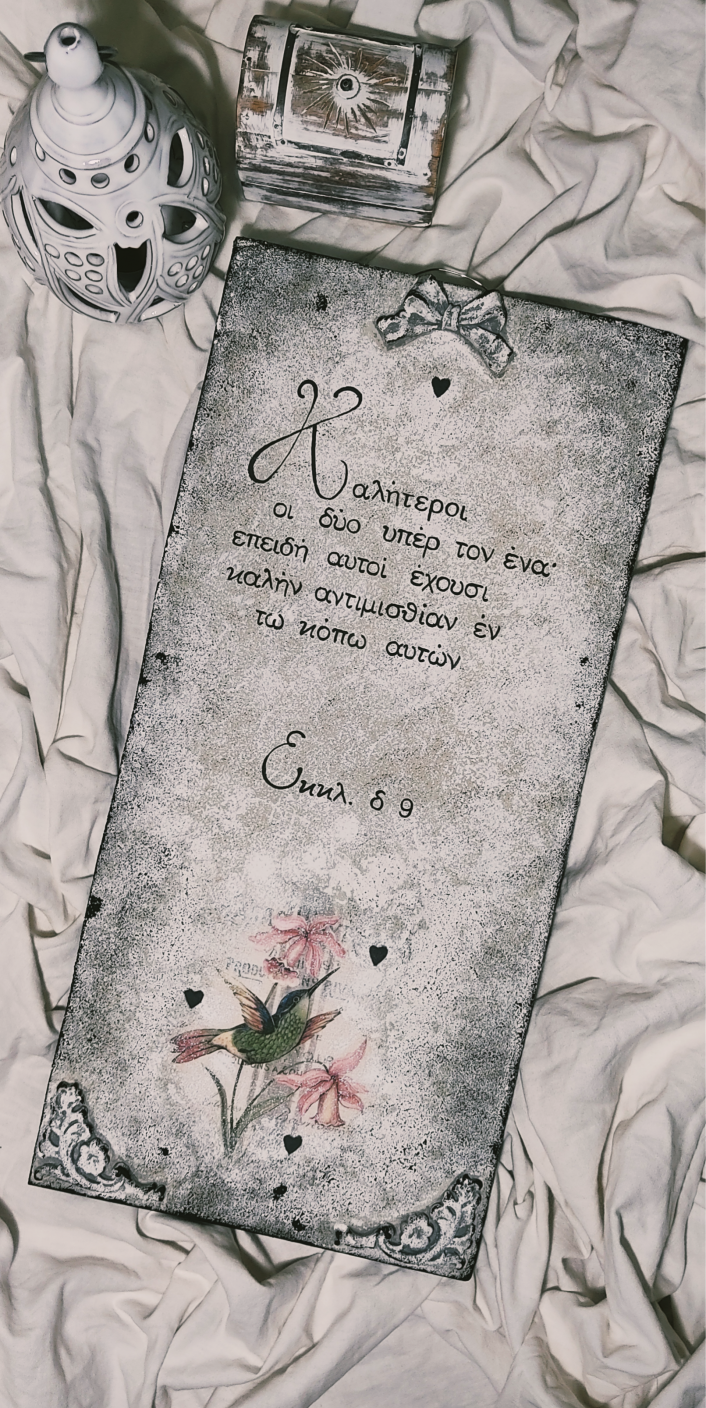 Καλήτεροι
οι δύο υπέρ τον ένα·
επειδή αυτοί έχουσι
καλήν αντιμισθίαν έν
τώ κόπω αυτών
Εκκλ. δ 9